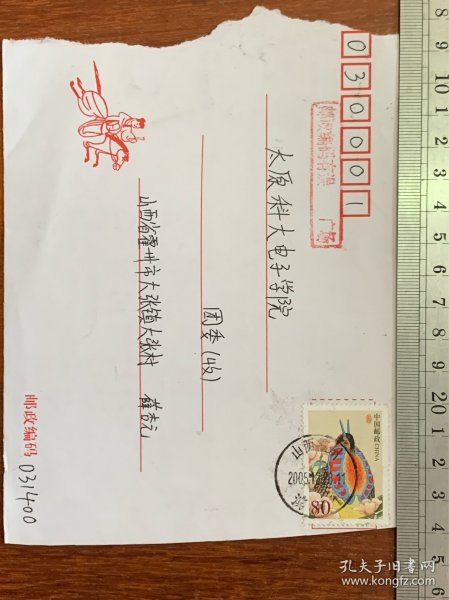 030001
邮政编码有误
广场
太原科大电子学院
团委(收)
山西省霍州市大张镇大张村 薛杏元
邮政编码 031400
中国邮政 CHINA
80
山西
2005.12
8 9 10 1 2 3 4 5 6 7 8 9 20 1 2
孔夫子旧书网
www.kongfz.com